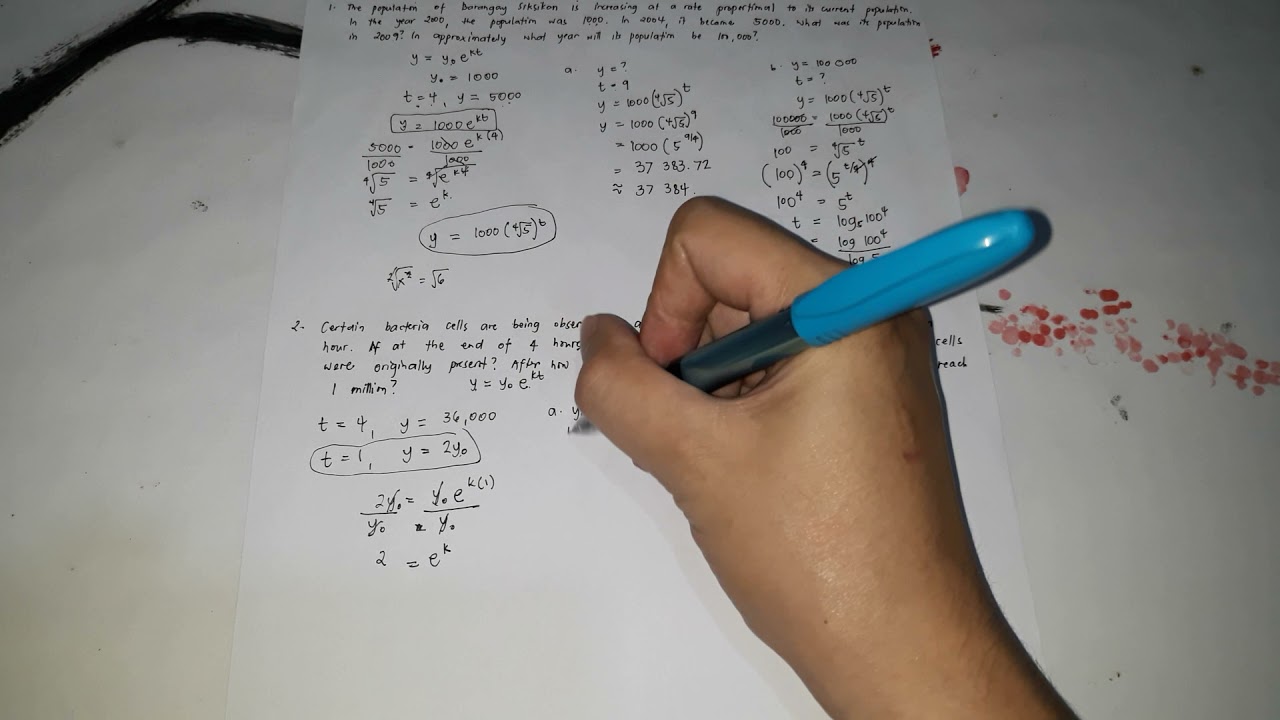 1. The population of Barangay Siksikan is increasing at a rate proportional to its current population.
In the year 2000, the population was 1000. In 2004, it became 5000. What was its population
in 2009? In approximately what year will its population be 100,000?
y = y₀ e^kt
y₀ = 1000
t = 4, y = 5000
y = 1000 e^kt
5000/1000 = 1000 e^k(4)/1000
⁴√5 = ⁴√e^k4
⁴√5 = e^k
y = 1000 (⁴√5)^t
²√x² = √6
a. y = ?
t = 9
y = 1000 (⁴√5)^t
y = 1000 (⁴√5)^9
= 1000 (5^9/4)
= 37 383.72
≈ 37 384.
b. y = 100 000
t = ?
y = 1000 (⁴√5)^t
100000/1000 = 1000 (⁴√5)^t/1000
100 = ⁴√5^t
(100)^4 = (5^t/4)^4
100^4 = 5^t
t = log₅ 100^4
= log 100^4/log 5
2. Certain bacteria cells are being
hour. If at the end of 4 hours cells
were originally present? After how reach
1 million?
y = y₀ e^kt
t = 4, y = 36,000
t = 1, y = 2y₀
2y₀/y₀ = y₀ e^k(1)/y₀
2 = e^k
a. y